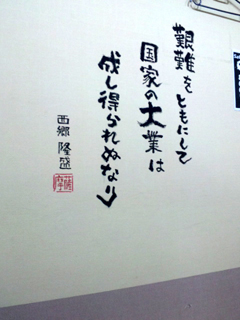 艱難をともにして
国家の大業は
成し得られぬなり
西郷隆盛
薩摩